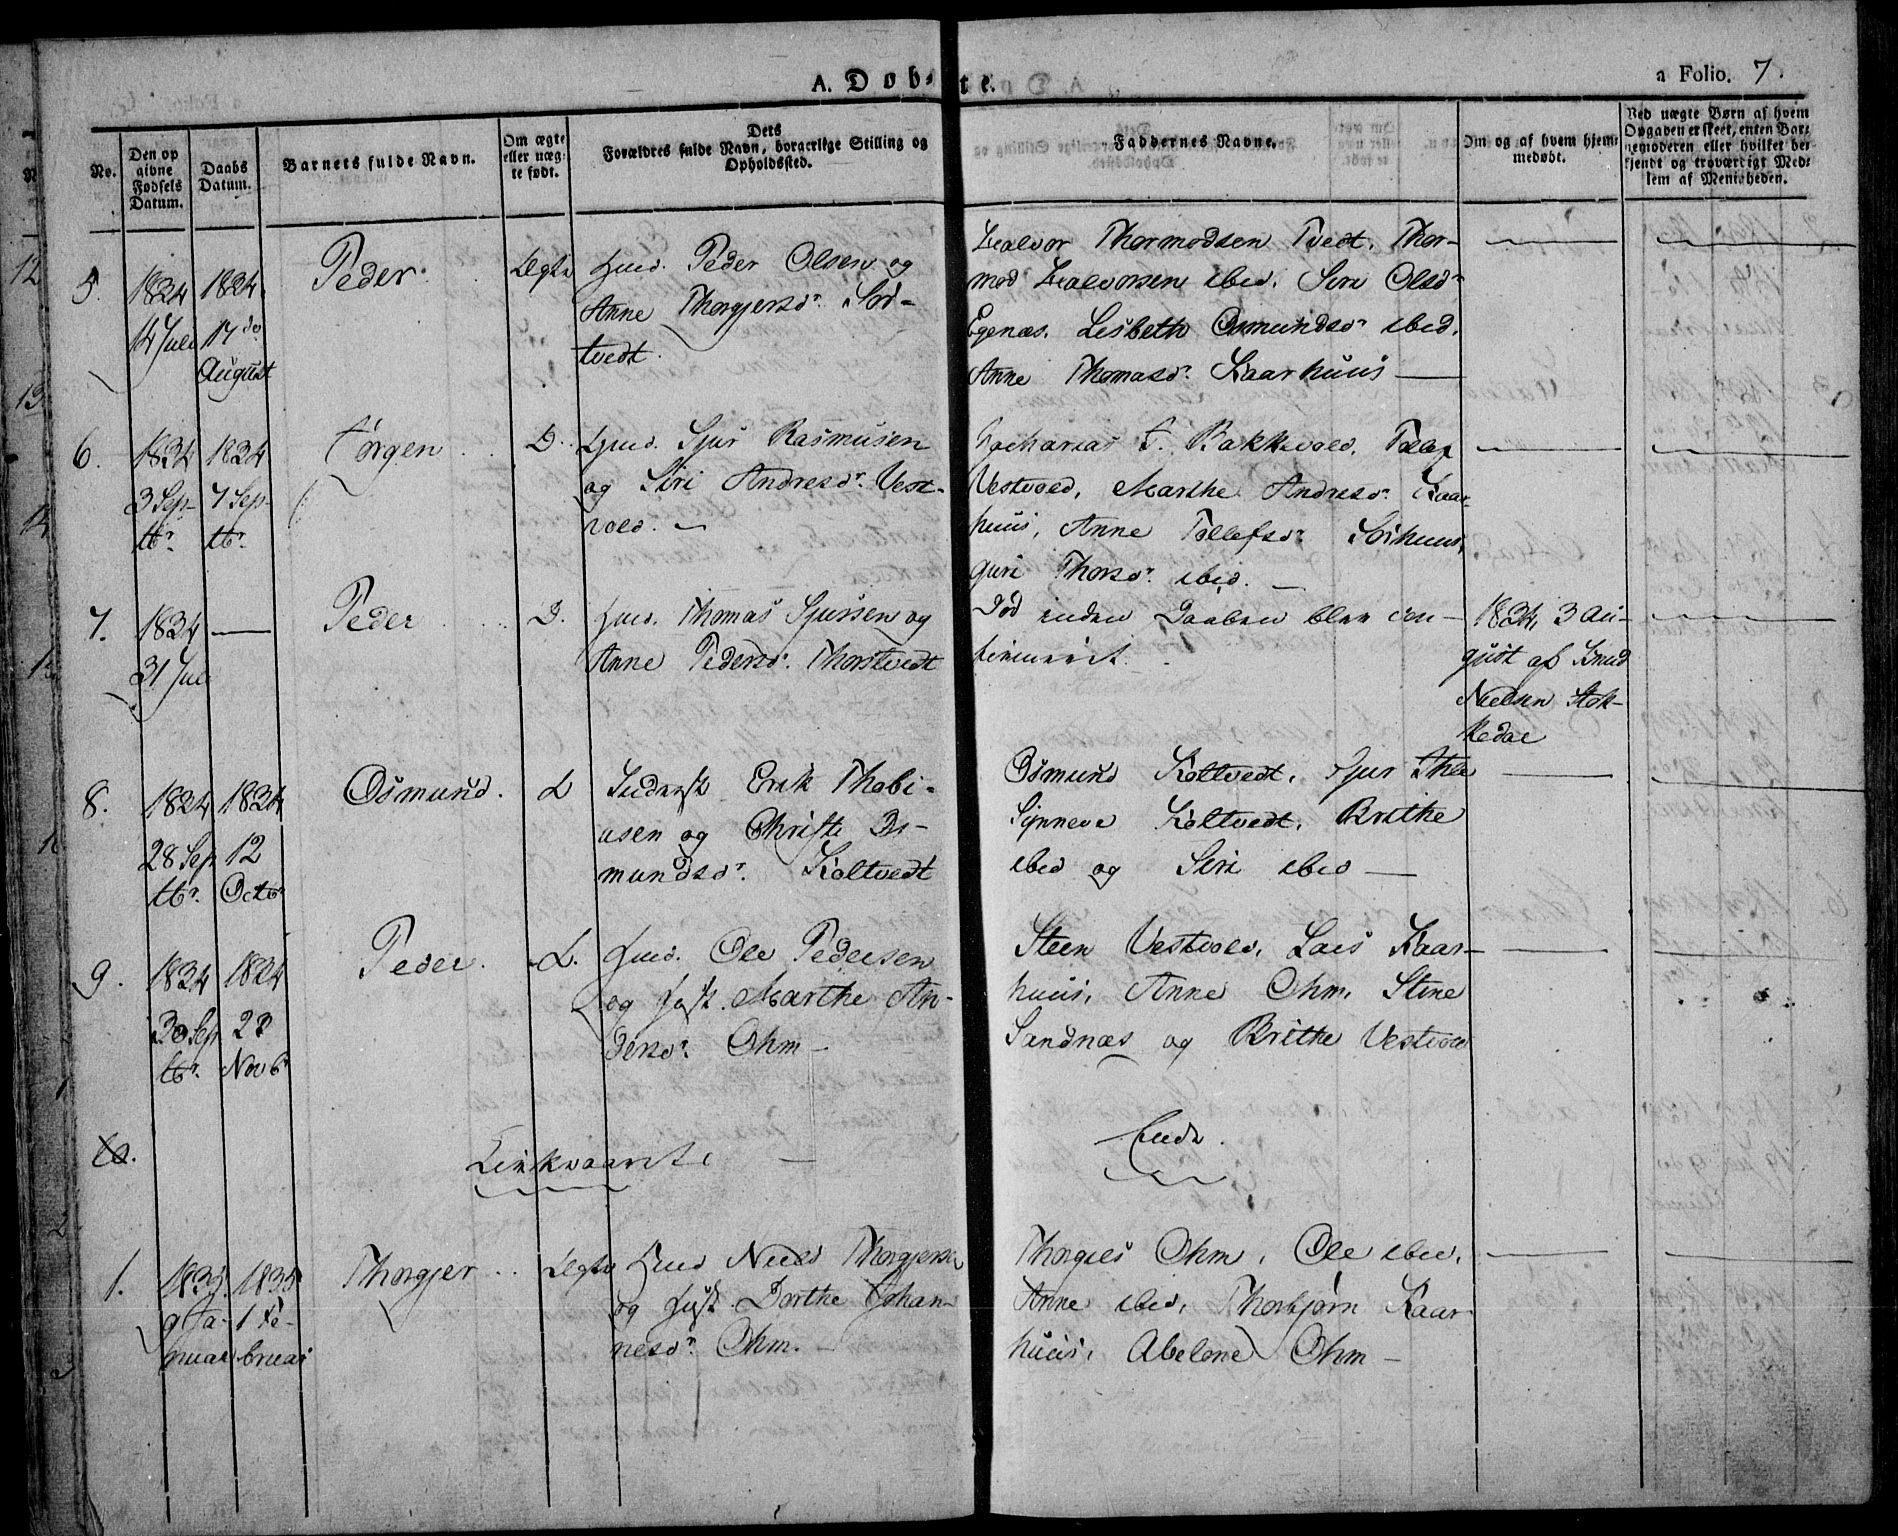 A. Døb-
te.
a Folio. 7.
No.
Den op
givne
Fødsels
Datum.
Daabs
Datum.
Barnets fulde Navn.
Om ægte
eller uæg-
te født.
Dets
Forældres fulde Navn, borgerlige Stilling og
Opholdssted.
Faddernes Navne.
Om og af hvem hjem-
medøbt.
Ved uægte Børn af hvem
Opgaven er skeet, enten Bar-
nemoderen eller hvilket be-
kjendt og troværdigt Med-
lem af Menigheden.
5.
1834
14 Juli
1834
17 do
August
Peder.
Ægte
Huusm. Peder Olsen og
Anne Thorgjersdr. Sør-
tvedt.
Halvor Thormodsen Tvedt, Thor-
mod Halvorsen ibid. Siri Olsdr
Egenæs. Lisbeth Osmundsdr ibid.
Anne Thomasdr. Kaarhuus
6.
1834
3 Sep-
tbr.
1834
7 Sep-
tbr.
Jørgen
D.
Sjur Rasmusen
og Siri Andresdr. Vest-
vold.
Zacharias Bakkevold, Tollef
Vestvold, Marthe Andresdr. Kaar-
huus, Anne Tollefsdr. Sørhuus,
Guri Thorsdr. ibid.
7.
1834
31 Juli
Peder
D.
Thomas Sjursen og
Anne Pedersdr. Thorstvedt
Død inden Daaben blev con-
firmeret.
1834, 3 Au-
gust af Knud
Nielsen Stok-
kedal
8.
1834
28 Sep
tbr.
1834
12
Octbr
Osmund.
D
Erik Thobi-
asen og Christi Os-
mundsdr. Koltvedt
Osmund Koltvedt, Sjur
Synneve Koltvedt, Brithe
ibid og Siri ibid
9.
1834
30 Sep
tbr.
1834
23
Novbr
Peder.
D.
Ole Pedersen
og Hust. Marthe An-
dersdr. Ohm
Steen Vestvold, Lars Kaar-
huus, Anne Ohm, Stine
Sandnæs og Brithe Vestvold
10.
Ende.
1.
1835.
9 Ja-
nuar
1835
1 Fe-
bruar
Thorgjer
Ægte
Niels Thorgjersen
og Hust. Dorthe Johan-
nesdr. Ohm.
Thorgies Ohm, Ole ibid,
Anne ibid, Thorbjørn Kaar-
huus, Abelone Ohm